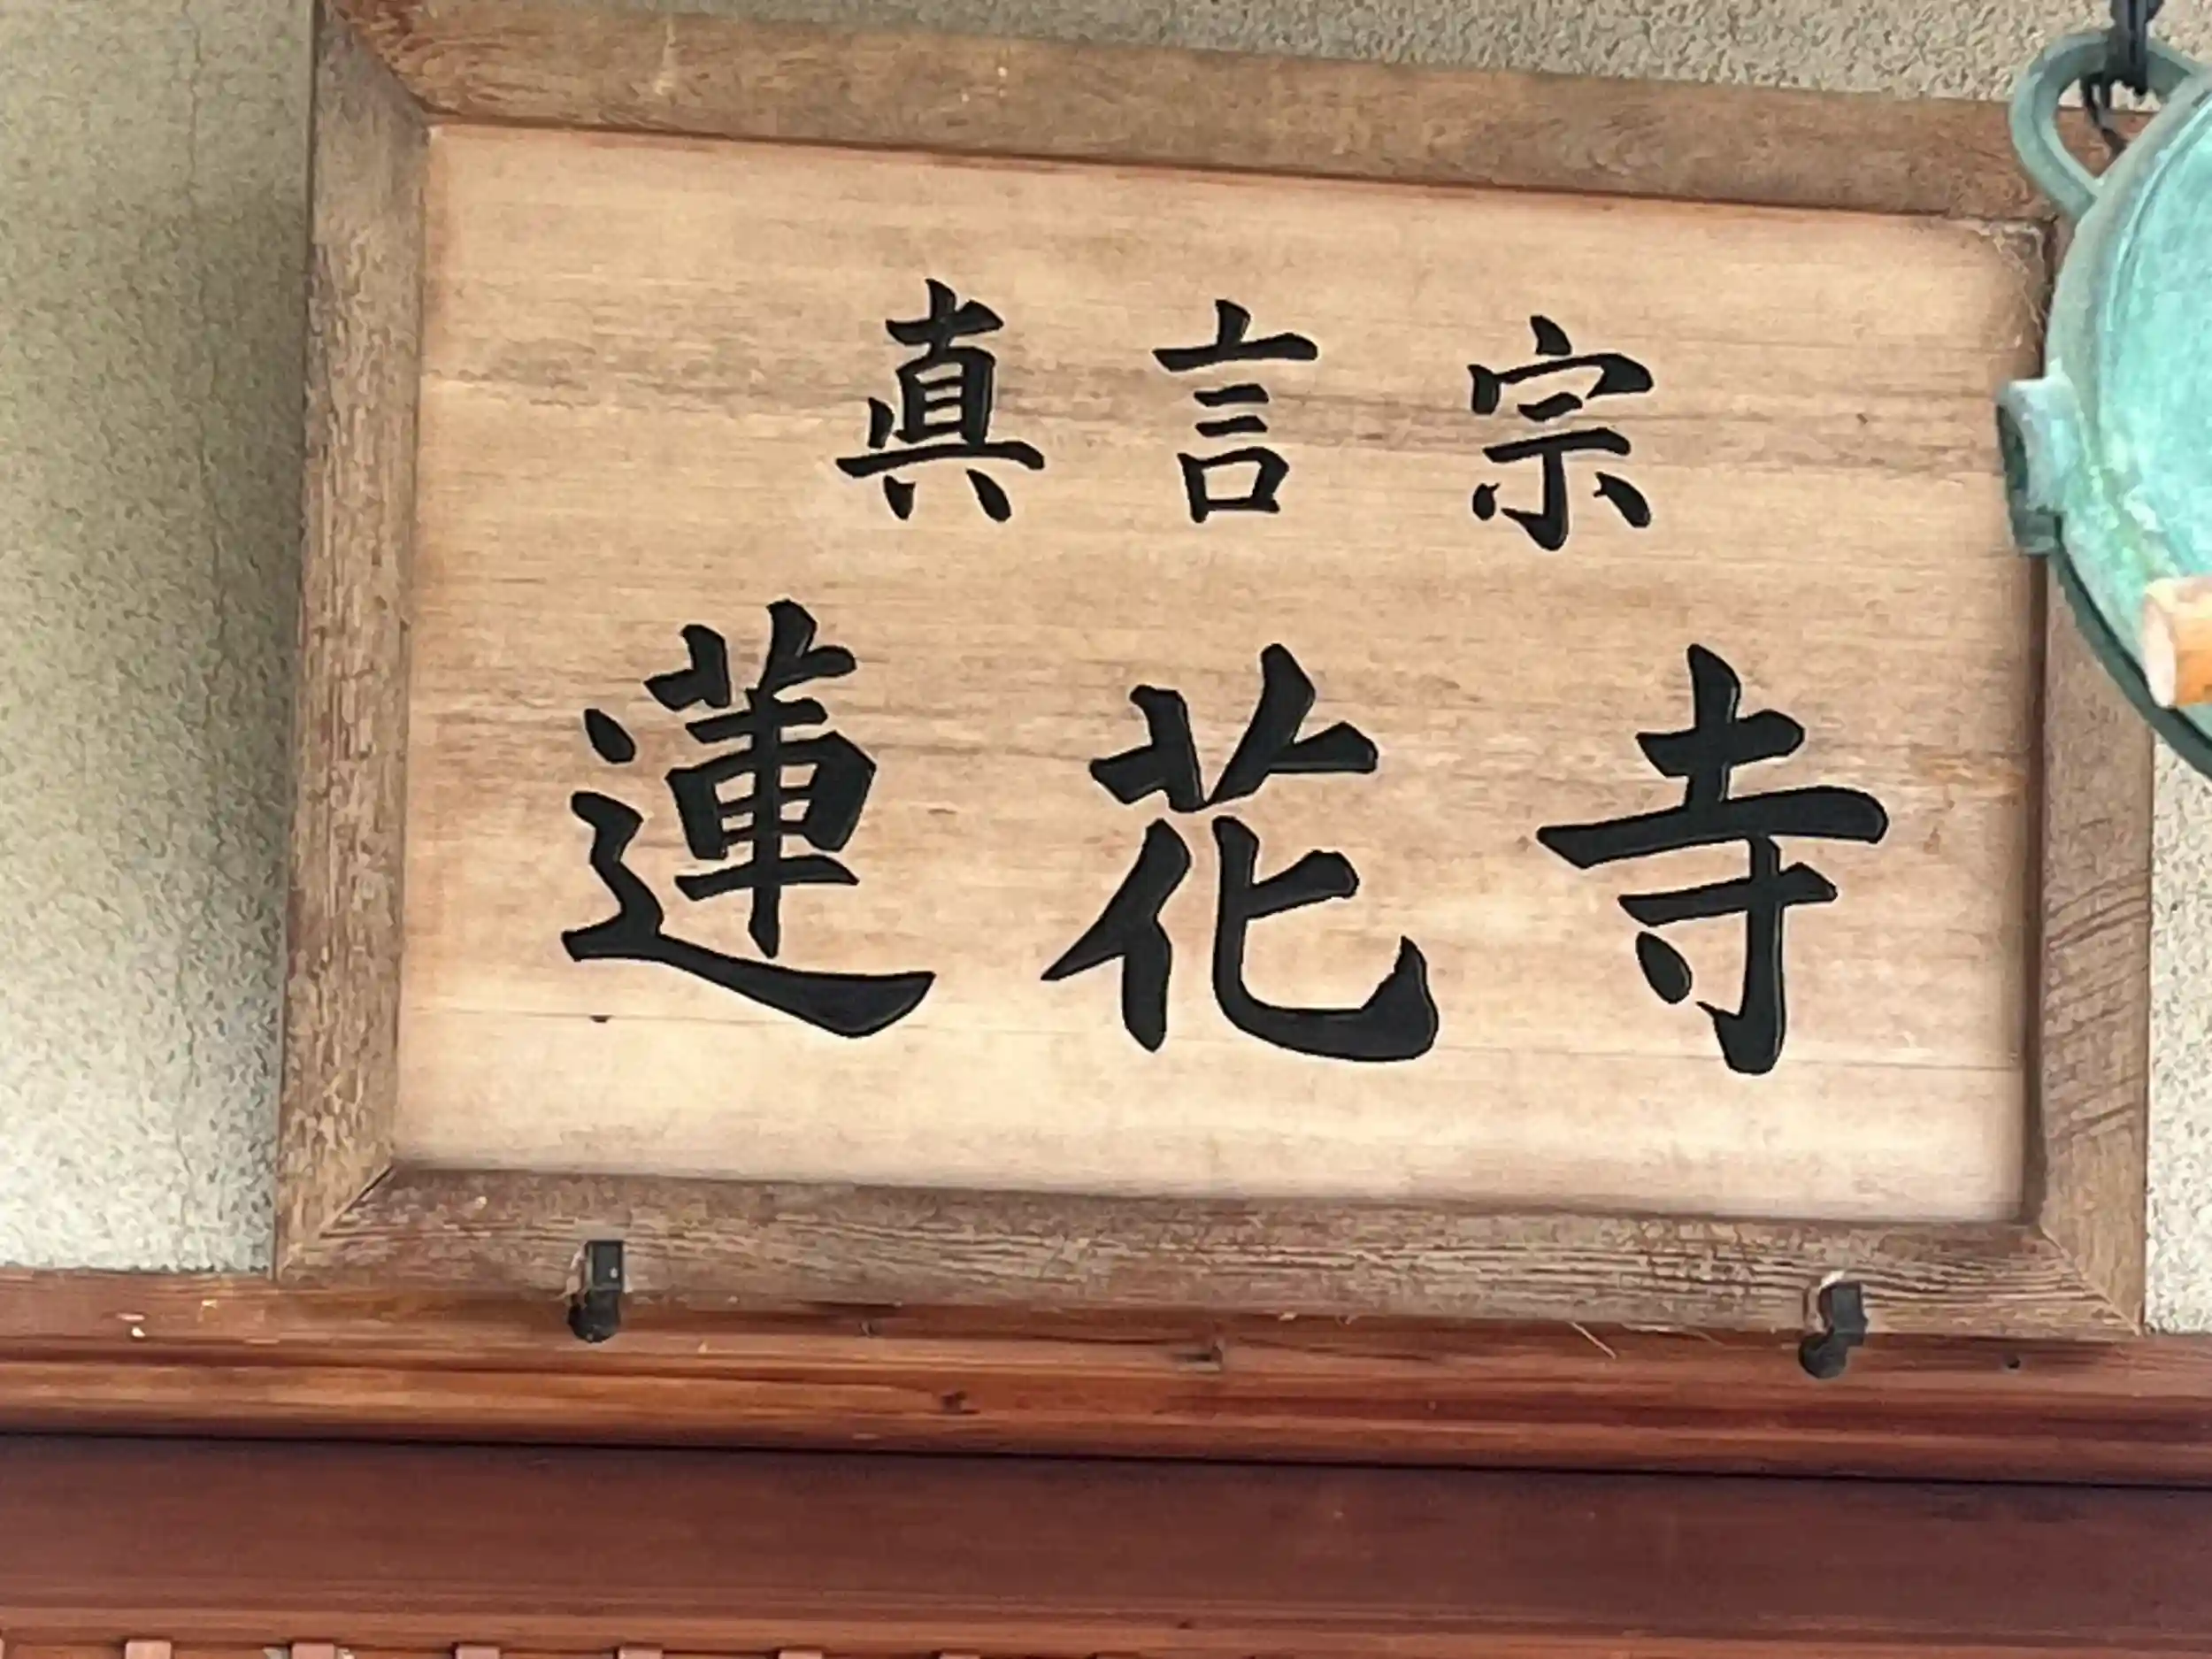 真言宗
蓮花寺